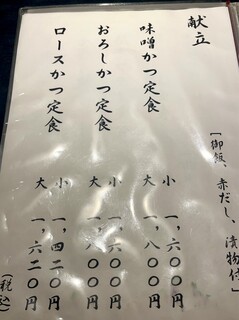 献立
[御飯、赤だし、漬物付]
味噌かつ定食
小 一、六〇〇円
大 一、八〇〇円
おろしかつ定食
小 一、六〇〇円
大 一、八〇〇円
ロースかつ定食
小 一、四二〇円
大 一、六二〇円
(税込)